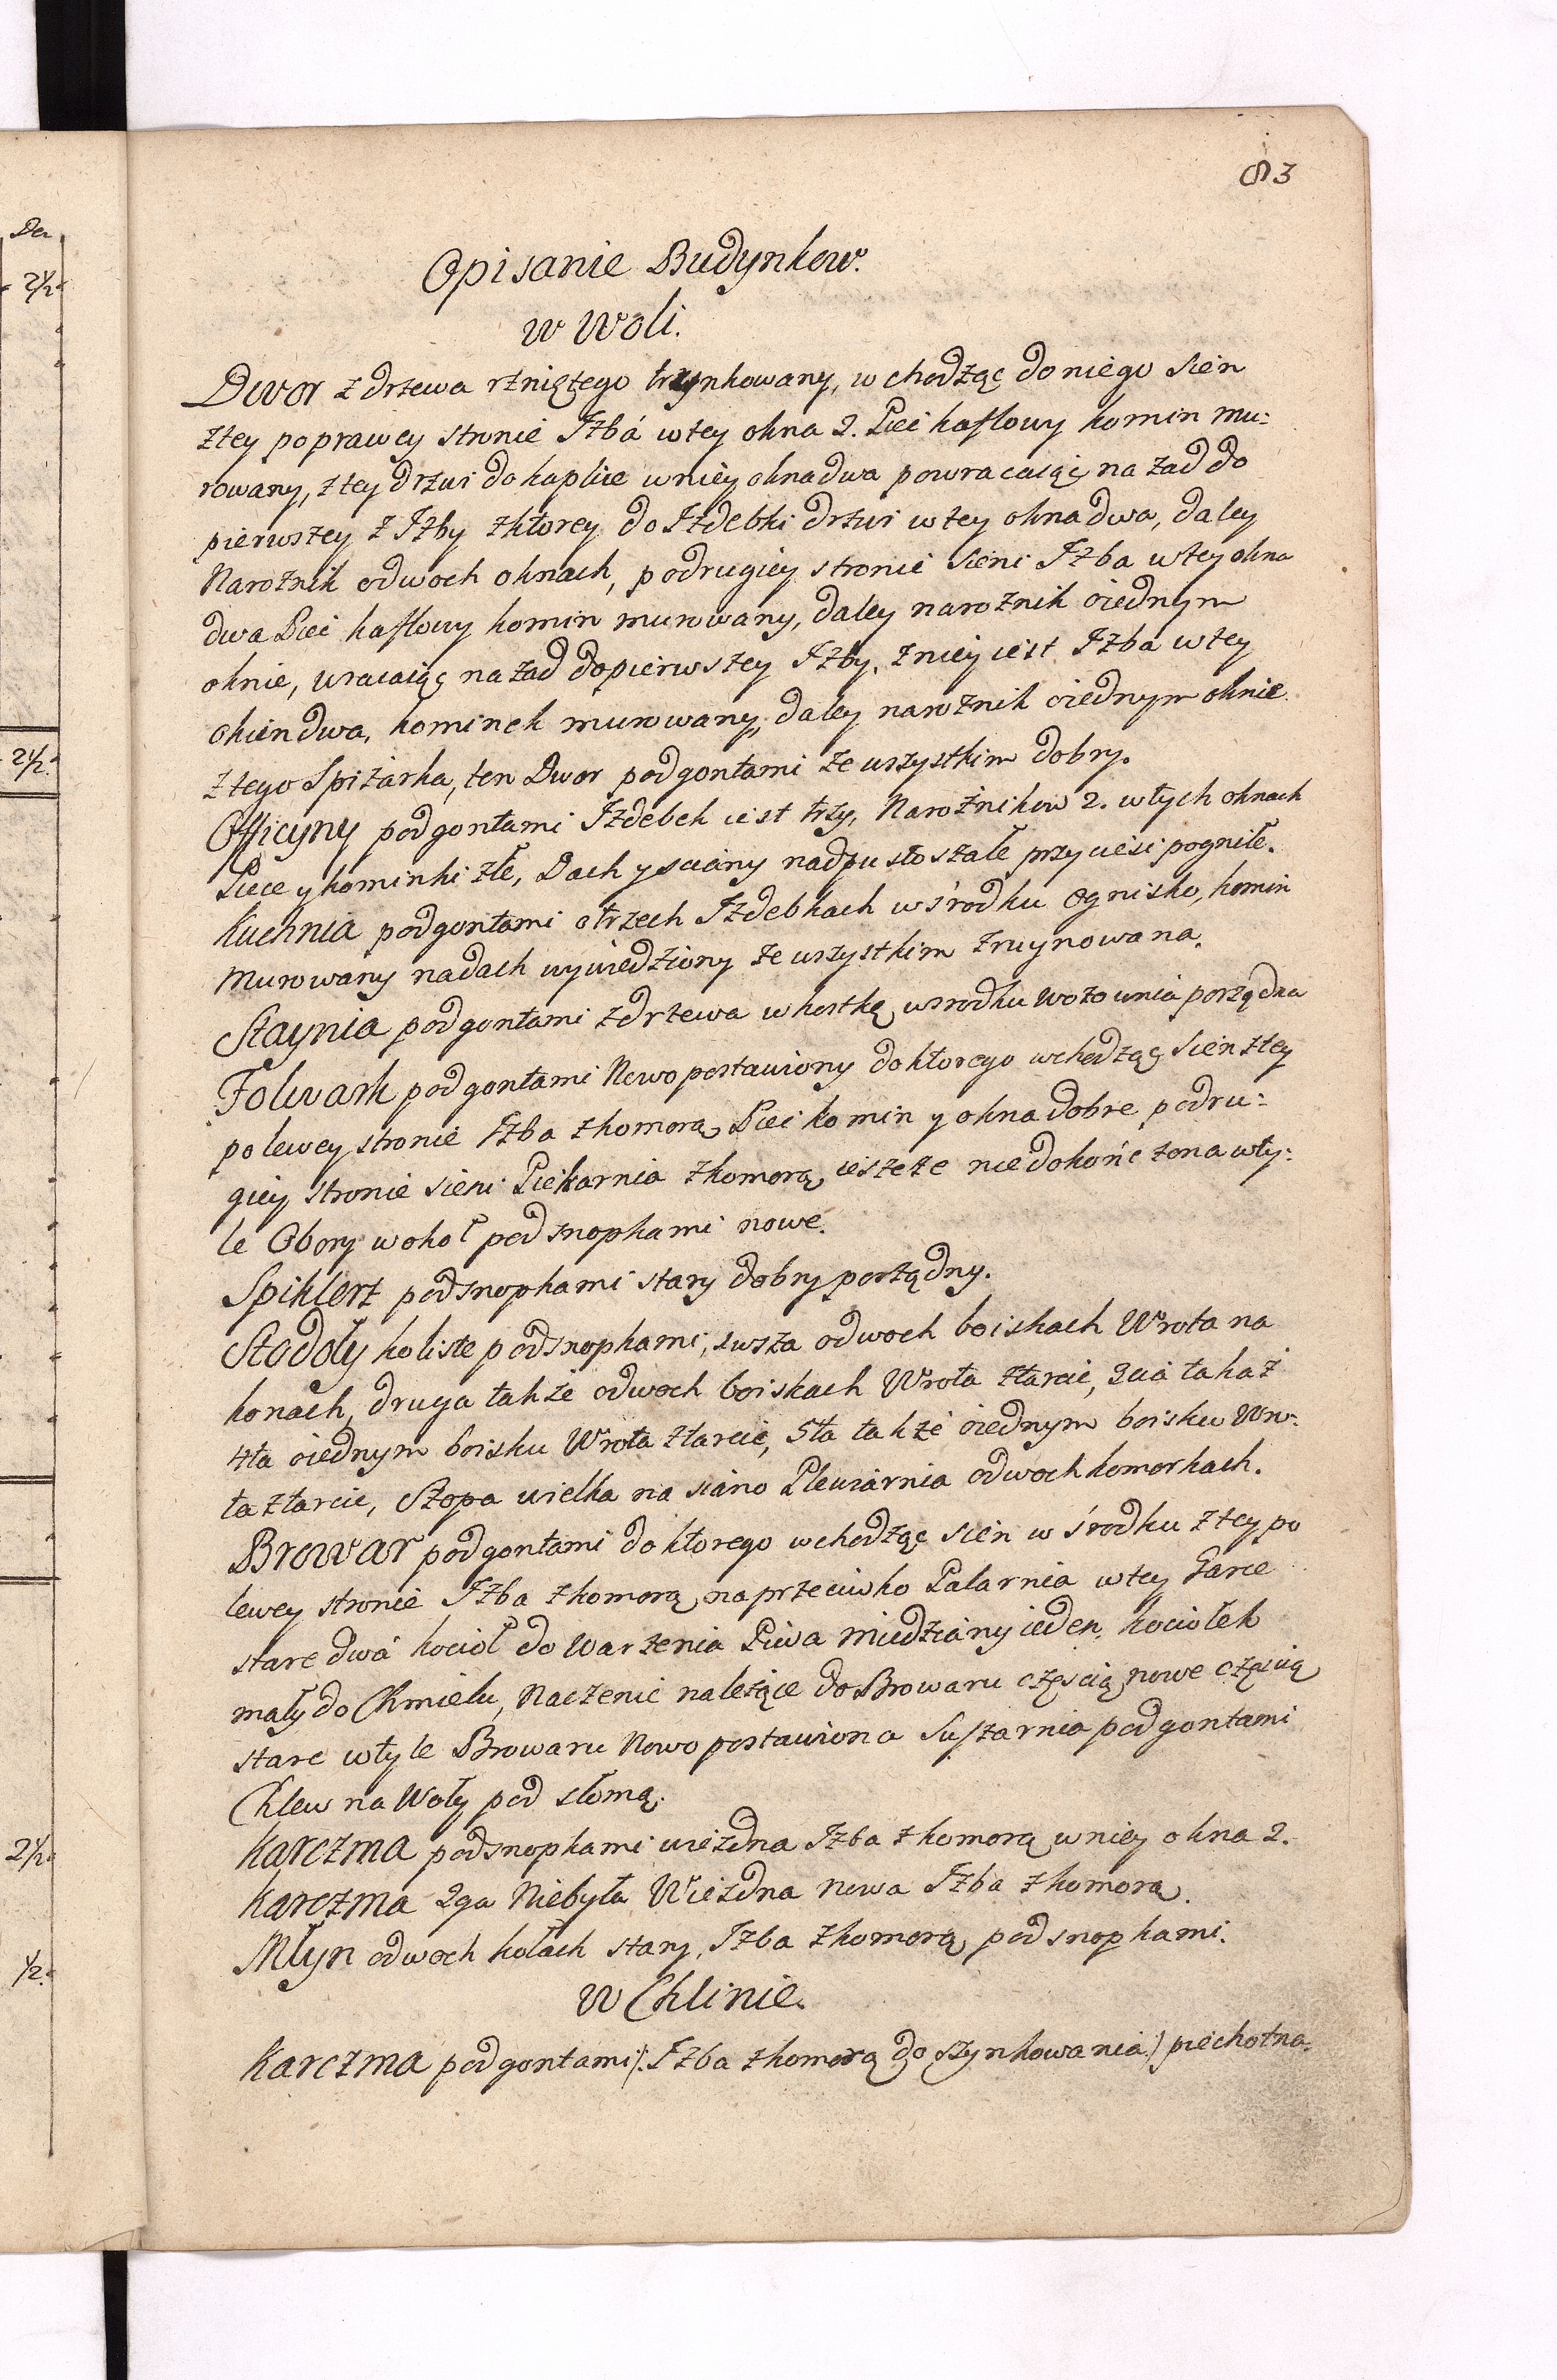 83
Da
2½
2½
2½
½
Opisanie Budynkow.
w Woli.
Dwor z drzewa rzniętego trzynkowany, wchodząc do niego Sien
z tey po prawey stronie Izba w tey okna 2. Piec kaflowy komin mu:
rowany, z tey drzwi do kaplice w niey okna dwa powracaiąc na zad do
pierwszey z Izby z ktorey do Izdebki drzwi w tey okna dwa, daley
Narożnik o dwoch oknach, po drugiey stronie Sieni Izba w tey okna
dwa Piec kaflowy komin murowany, daley narożnik o iednym
oknie, wracaiąc na zad do pierwszey Izby, z niey iest Izba w tey
okien dwa, kominek murowany, daley narożnik o iednym oknie
z tego Spiżarka, ten Dwor pod gontami ze wszystkim dobry.
Officyny pod gontami Izdebek iest trzy, Narożnikow 2. w tych oknach
Piece y kominki złe, Dach y sciany nadpustoszałe przyciesi pogniłe.
Kuchnia pod gontami o trzech Izdebkach w środku Ognisko, komin
murowany na dach wywiedziony ze wszystkim zruynowana.
Staynia pod gontami z drzewa w kostkę, w srodku Wozownia porządna
Folwark pod gontami Nowo postawiony do ktorego wchodząc Sien z tey
po lewey stronie Izba z komorą, Piec komin y okna dobre po dru:
giey stronie sieni Piekarnia z komorą, ieszcze nie dokończona w ty:
le Obory wokoł pod snopkami nowe.
Spiklerz pod snopkami stary dobry porządny.
Stodoły koliste pod snopkami, 1wsza o dwoch boiskach Wrota na
konach, druga także o dwoch boiskach Wrota z tarcic, 3cia takaż
4ta o iednym boisku Wrota z tarcic, 5ta także o iednym boisku Wro:
ta z tarcic, Szopa wielka na siano Plewiarnia o dwoch komorkach.
Browar pod gontami do ktorego wchodząc Sien w środku z tey po
lewey stronie Izba z komorą, na przeciwko Palarnia w tey Garce
stare dwa kocioł do warzenia Piwa miedziany ieden, kociołek
mały do Chmielu, Naczenie należące do Browaru częscią nowe częscią
stare w tyle Browaru Nowo postawiona Suszarnia pod gontami
Chlew na Woły pod słomą.
Karczma pod snopkami wieżdna Izba z komorą w niey okna 2.
Karczma 2ga Niebyła Wieżdna nowa Izba z komorą.
Młyn o dwoch kołach stary, Izba z komorą, pod snopkami.
w Chlinie.
Karczma pod gontami /: Izba z komorą do szynkowania :/ piechotna.